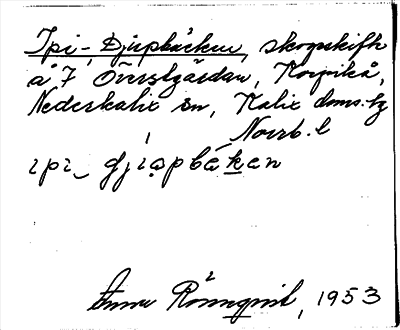 Ipi-, Djupbäcken, skogsskifte
å 7 Överstgården, Korpikå,
Nederkalix sn, Kalix doms. hg
Norrb. l
ɪpɪ_ gjɪapbäkən
Rönnqvist, 1953